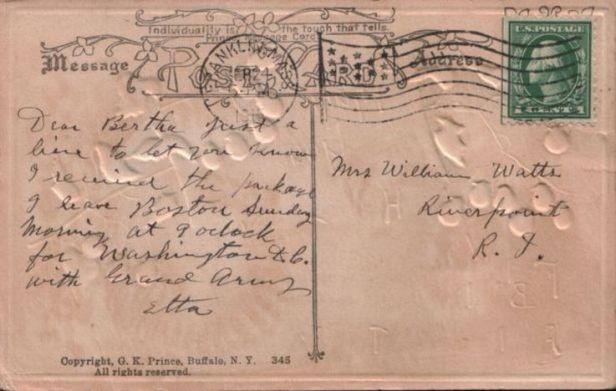 Individuality is the touch that tells.
Message
POST CARD
Address
U.S. POSTAGE
Dear Bertha Just a
line to let you know
I received the package
I leave Boston Sunday
Morning at 9 oclock
for Washington D.C.
with Grand Army
Etta
Mrs William Watts
Riverpoint
R. I.
Copyright, G. K. Prince, Buffalo, N. Y. 345
All rights reserved.